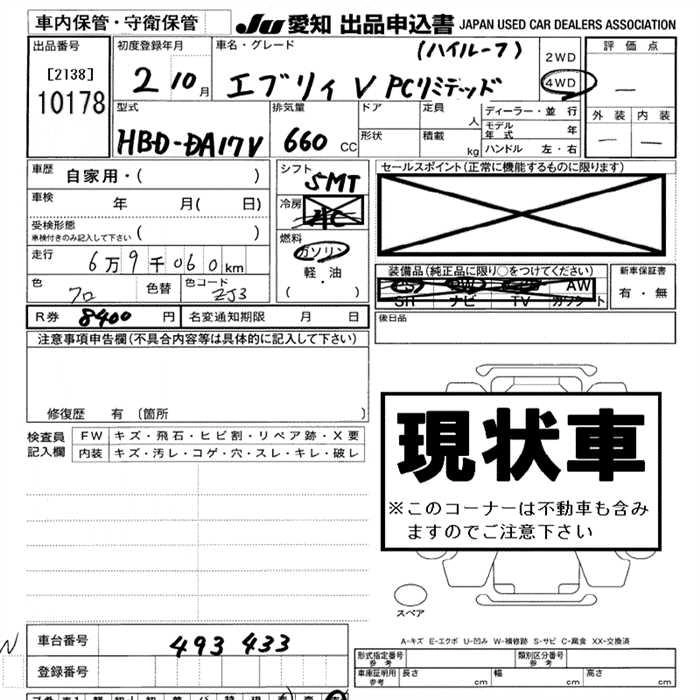 車内保管・守衛保管 JU 愛知 出品申込書 JAPAN USED CAR DEALERS ASSOCIATION
出品番号 初度登録年月 車名・グレード (ハイルーフ) 2WD 評価点
[2138] 2 10月 エブリィ V PCリミテッド 4WD —
10178 型式 排気量 ドア 定員 人 ディーラー・並行 外装 内装
HBD-DA17V 660 CC 形状 積載 kg モデル年式 年 — —
ハンドル 左・右
車歴 自家用・( ) シフト 5MT セールスポイント(正常に機能するものに限ります)
車検 年 月( 日) 冷房
受検形態 ( )
車検付きのみ記入して下さい
燃料 ガソリン
走行 6万9千060km 軽・油 装備品(純正品に限り○をつけてください) 新車保証書
色 色替 色コード ( ・ ) AW 有・無
フロ ZJ3 ナビ TV
R券 8400円 名変通知期限 月 日 後日品
注意事項申告欄(不具合内容等は具体的に記入して下さい)
修復歴 有 (箇所
現状車
※このコーナーは不動車も含み
ますのでご注意下さい
検査員 FW キズ・飛石・ヒビ割・リペア跡・X要
記入欄 内装 キズ・汚レ・コゲ・穴・スレ・キレ・破レ
スペア
A-キズ E-エクボ U-凹み W-補修跡 S-サビ C-腐食 XX-交換済
車台番号 493433
登録番号
形式指定番号 参考 類別区分番号 参考
車庫証明用 参考 長さ cm 幅 cm 高さ cm